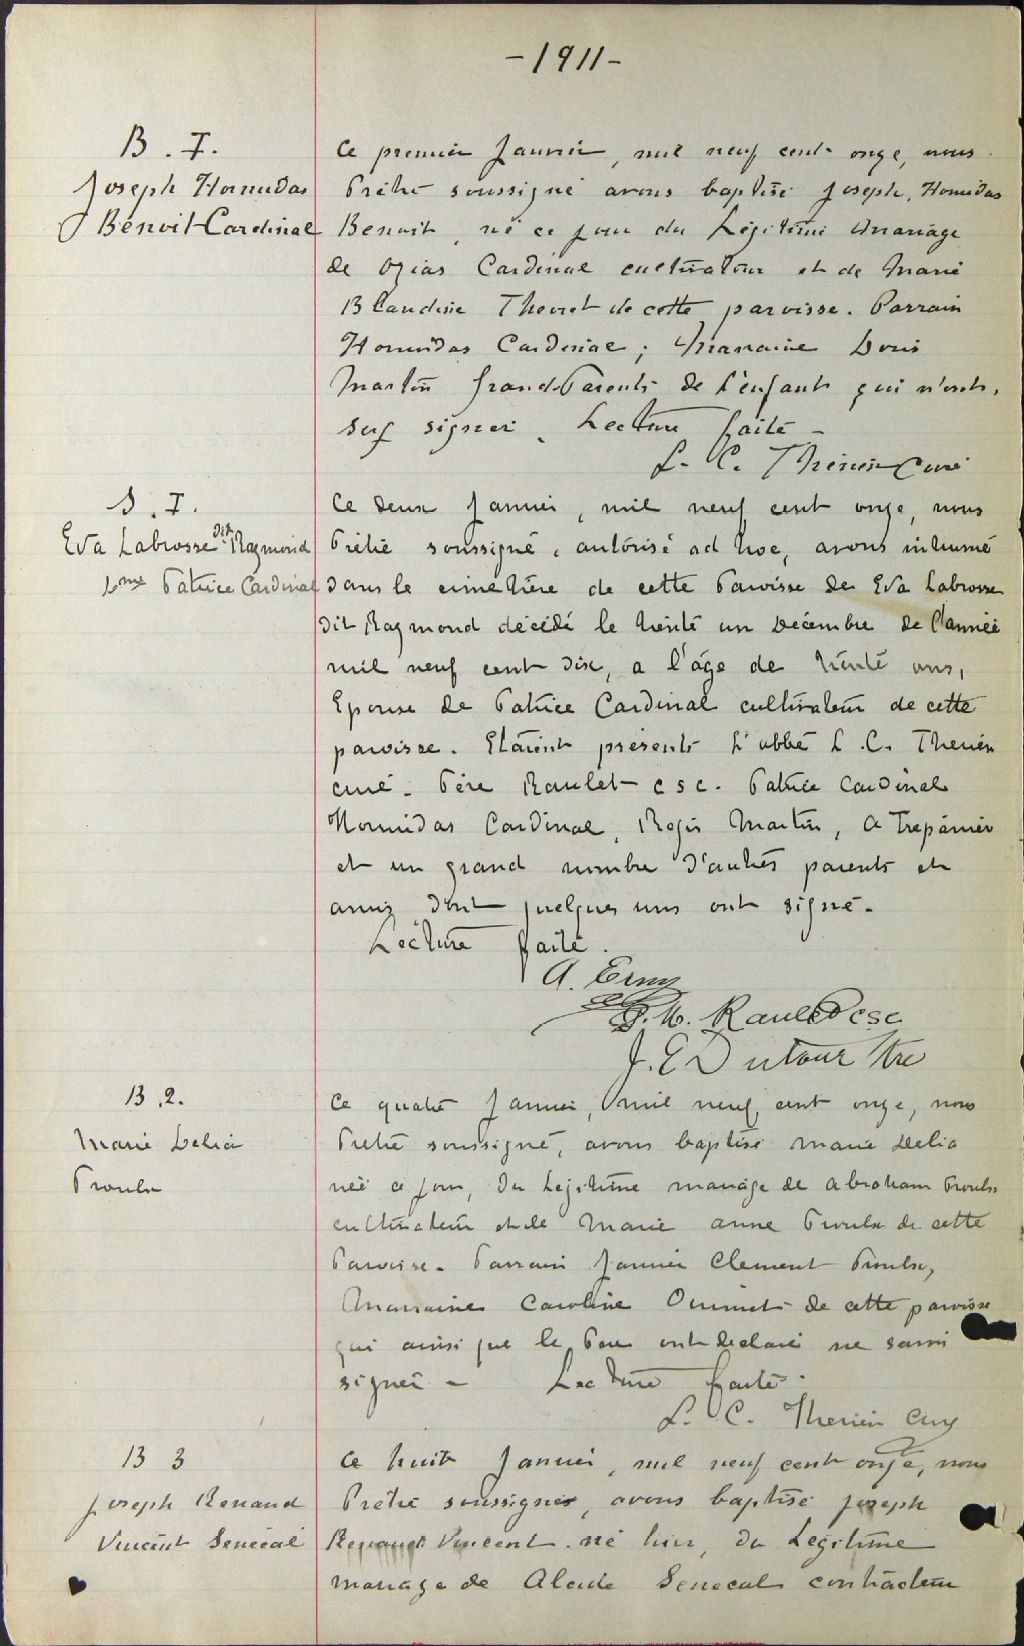 -1911-
B. I.
Joseph Homidas
Benoit Cardinal
Ce premier Janvier, mil neuf cent onze, nous
Prêtre soussigné avons baptisé Joseph, Homidas
Benoit, né ce jour du Légitime Mariage
de Ozias Cardinal cultivateur et de Marie
Blandine Theoret de cette paroisse. Parrain
Homidas Cardinal; Marraine
Martin Grand-Parents de l'enfant qui n'ont
su signer. Lecture faite -
L. C. Therien Curé
S. I.
Eva Labrosse dit Raymond
Patrice Cardinal
Ce deux Janvier, mil neuf cent onze, nous
Prêtre soussigné, autorisé ad hoc, avons inhumé
dans le cimetière de cette Paroisse de Eva Labrosse
dit Raymond décédé le trente un Décembre de l'année
mil neuf cent dix, a l'âge de trente ans,
Epouse de Patrice Cardinal cultivateur de cette
paroisse. Etaient présents L'abbé L. C. Therien
curé - Père Raulet csc. Patrice Cardinal
Homidas Cardinal, Régis Martin, A Trepanier
et un grand nombre d'autres parents et
amis dont quelques uns ont signé -
Lecture faite.
A.
Raulet csc
J. E Dutour Ptre
B. 2.
Marie Delia
Proulx
Ce quatre Janvier, mil neuf cent onze, nous
Prêtre soussigné, avons baptisé Marie Delia
née ce jour, du Légitime mariage de Abraham Proulx
cultivateur et de Marie Anne Proulx de cette
Paroisse. Parrain Janvier Clement Proulx,
Marraine Caroline Ouimet de cette paroisse
qui ainsi que le Père ont declaré ne savoir
signer - Lecture faite.
L. C. Therien Curé
B 3
Joseph Renaud
Vincent Senecal
Ce huit Janvier, mil neuf cent onze, nous
Prêtre soussigné, avons baptisé Joseph
Renaud Vincent né hier, du Légitime
mariage de Alcide Senecal contracteur